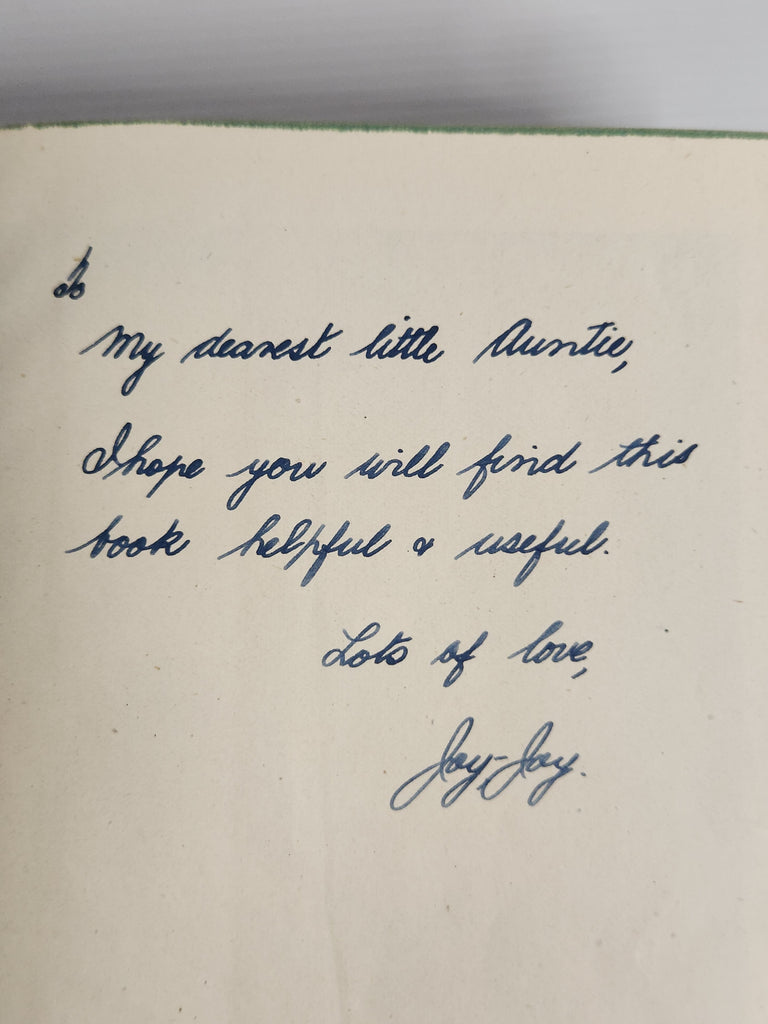 To
My dearest little Auntie,
I hope you will find this
book helpful & useful.
Lots of love,
Joy-Joy.